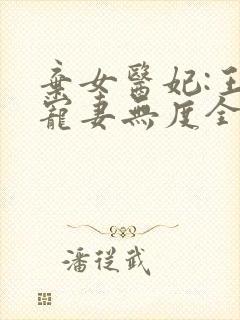 棄女醫妃:王
寵妻無度全
潘從武